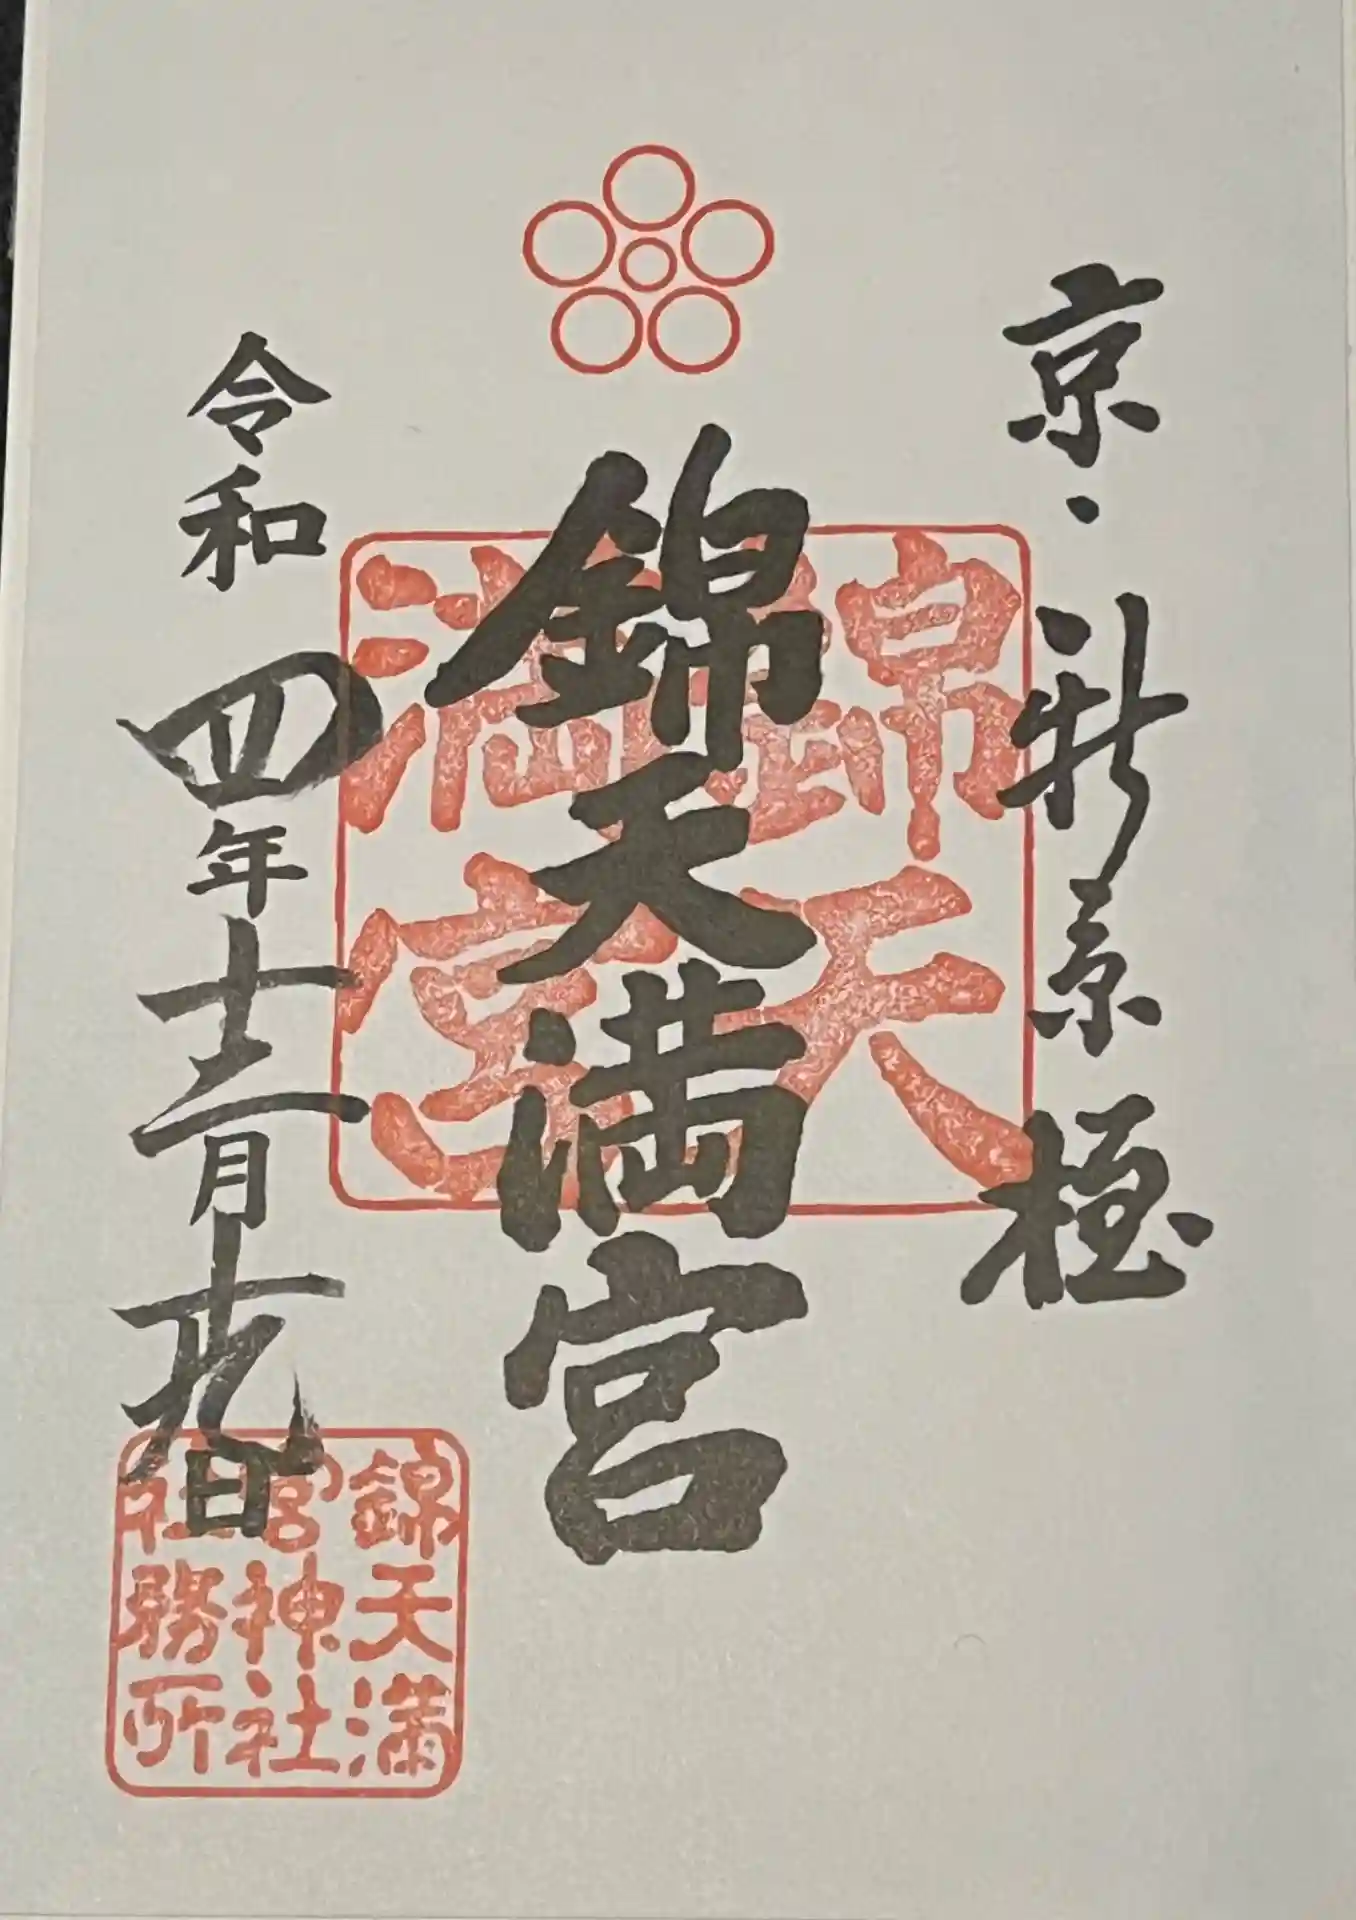 京・新京極
錦天満宮
錦天
満宮
令和四年十二月十九日
錦天満
宮神社
社務所